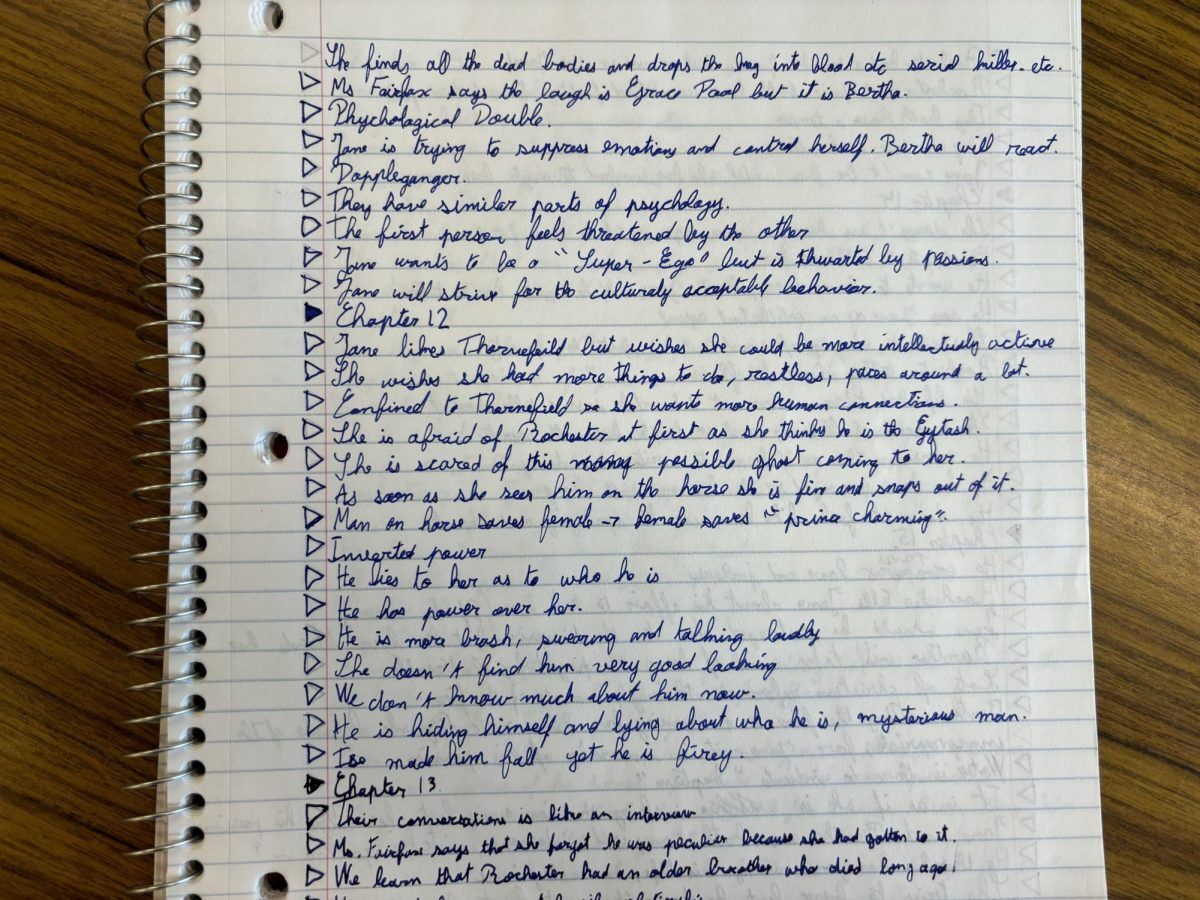 She finds all the dead bodies and drops the key into blood etc serial killer. etc.
Ms Fairfax says the laugh is Grace Pool but it is Bertha.
Phychological Double.
Jane is trying to suppress emotions and control herself. Bertha will react.
Doppleganger.
They have similar parts of psychology.
The first person feels threatened by the other
Jane wants to be a "Super-Ego" but is thwarted by passions.
Jane will strive for the culturaly acceptable behavior.
Chapter 12
Jane likes Thornefeild but wishes she could be more intellectually active
She wishes she had more things to do, restless, paces around a lot.
Confined to Thornefield so she wants more human connections.
She is afraid of Rochester at first as she thinks he is the Gytrash.
She is scared of this possible ghost coming to her.
As soon as she sees him on the horse she is fine and snaps out of it.
Man on horse saves female → female saves "prince charming".
Inverted power
He lies to her as to who he is
He has power over her.
He is more brash, swearing and talking loudly
She doesn't find him very good looking
We don't know much about him now.
He is hiding himself and lying about who he is, mysterious man.
Ice made him fall yet he is firey.
Chapter 13
Their conversations is like an interview
Ms. Fairfax says that she forgot he was peculiar because she had gotten to it.
We learn that Rochester had an older brother who died long ago.